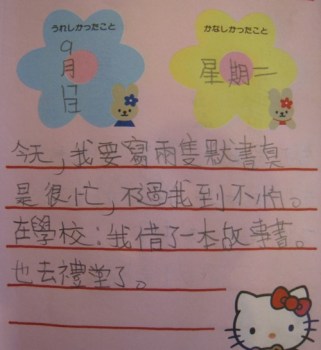 うれしかったこと
9月
日
かなしかったこと
星期二
今天，我要寫兩隻默書真
是很忙，不過我到不怕。
在學校：我借了一本故事書。
也去禮堂了。